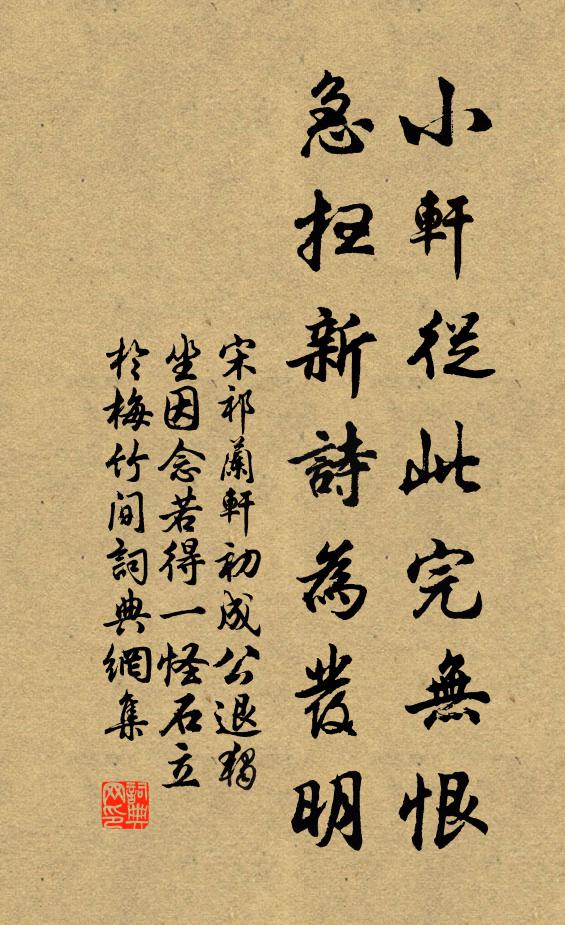 小軒從此完無恨
急抂新詩為發明
宋祁蘭軒初成公退獨
坐因念若得一怪石立
於梅竹间詞典網集
詞典网印